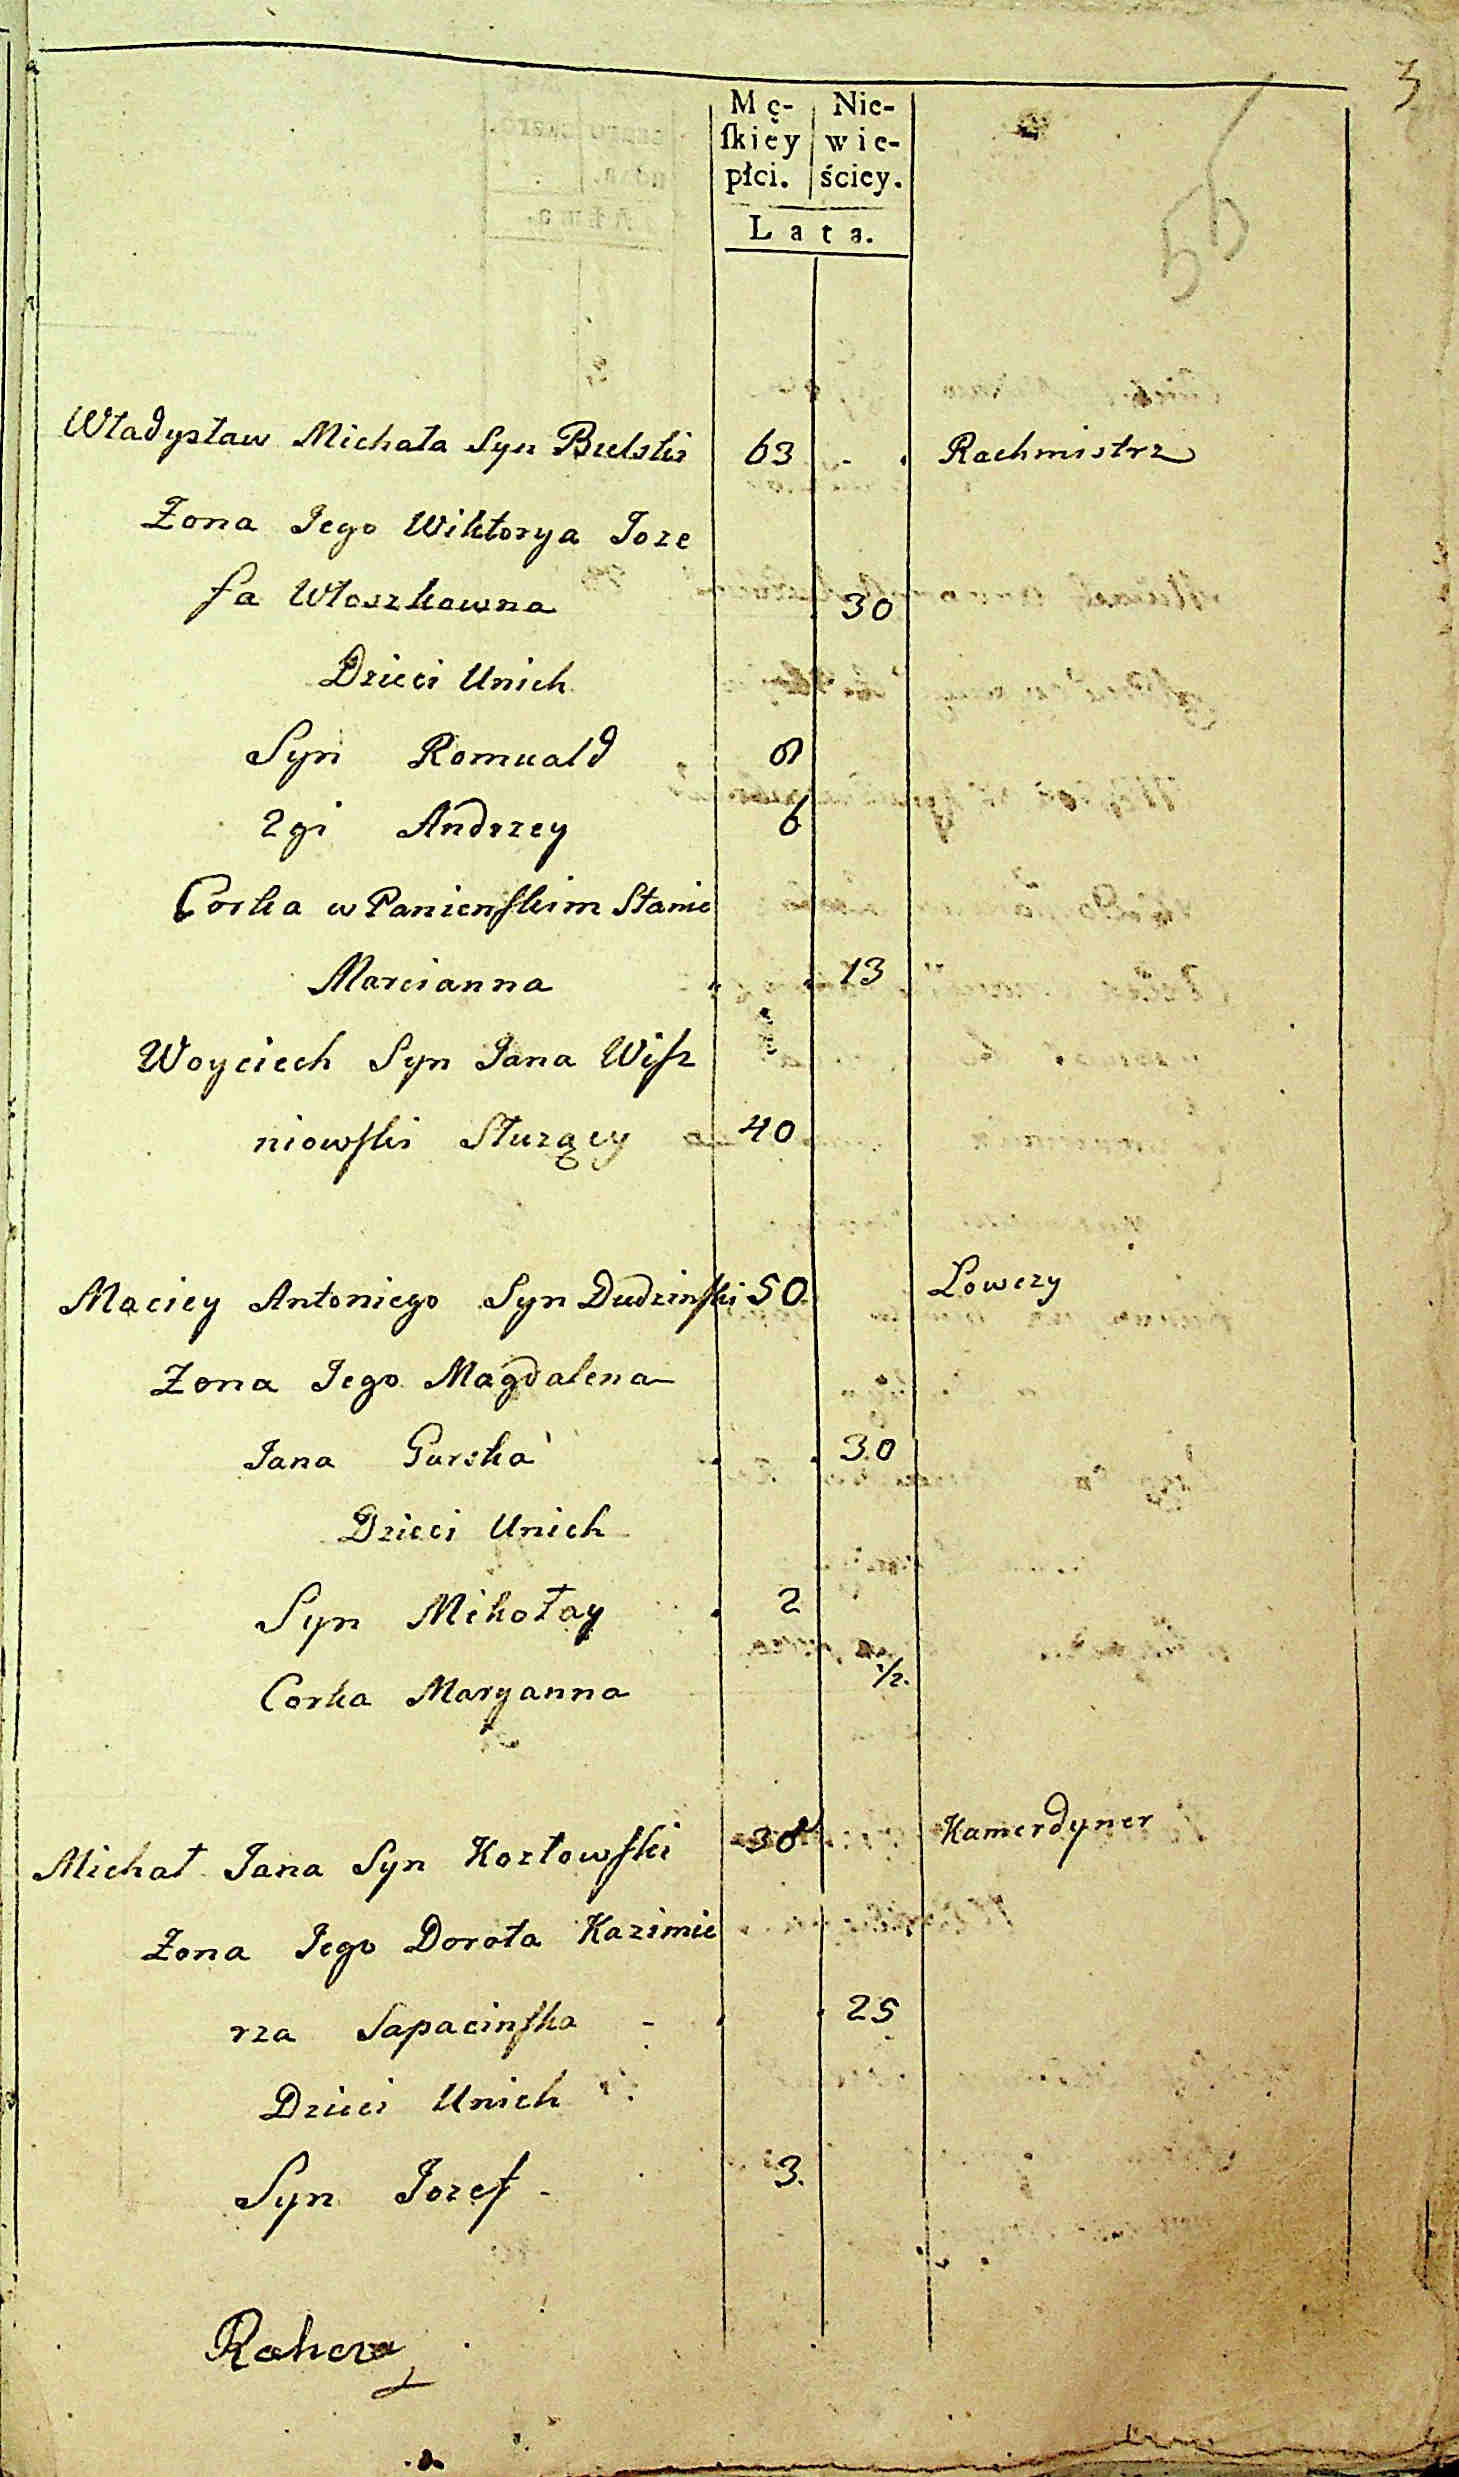 3
56
Mę- Nie-
ſkiey wie-
płci. ściey.
Lata.
Władysław Michała Syn Bielski 63 - . Rachmistrz
Żona Jego Wiktorya Joze
fa Włoszkowna 30
Dzieci Unich
Syn Romuald 8
2gi Andrzey 6
Corka w Panienſkim Stanie
Marcianna 13
Woyciech Syn Jana Wiſz
niowſki Służący 40
Maciey Antoniego Syn Dudzinſki 50 Łowczy
Żona Jego Magdalena
Jana Gurska 30
Dzieci Unich
Syn Mikołay 2
Corka Maryanna 1/2.
Michał Jana Syn Kozłowſki 38 Kamerdyner
Żona Jego Dorota Kazimie
rza Sapacinſka - 25
Dzieci Unich
Syn Jozef - 3.